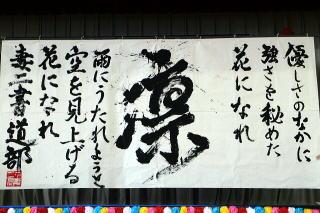 優しさのなかに
強さを秘めた
花になれ
凛
雨にうたれようと
空を見上げる
花になれ
妻二書道部